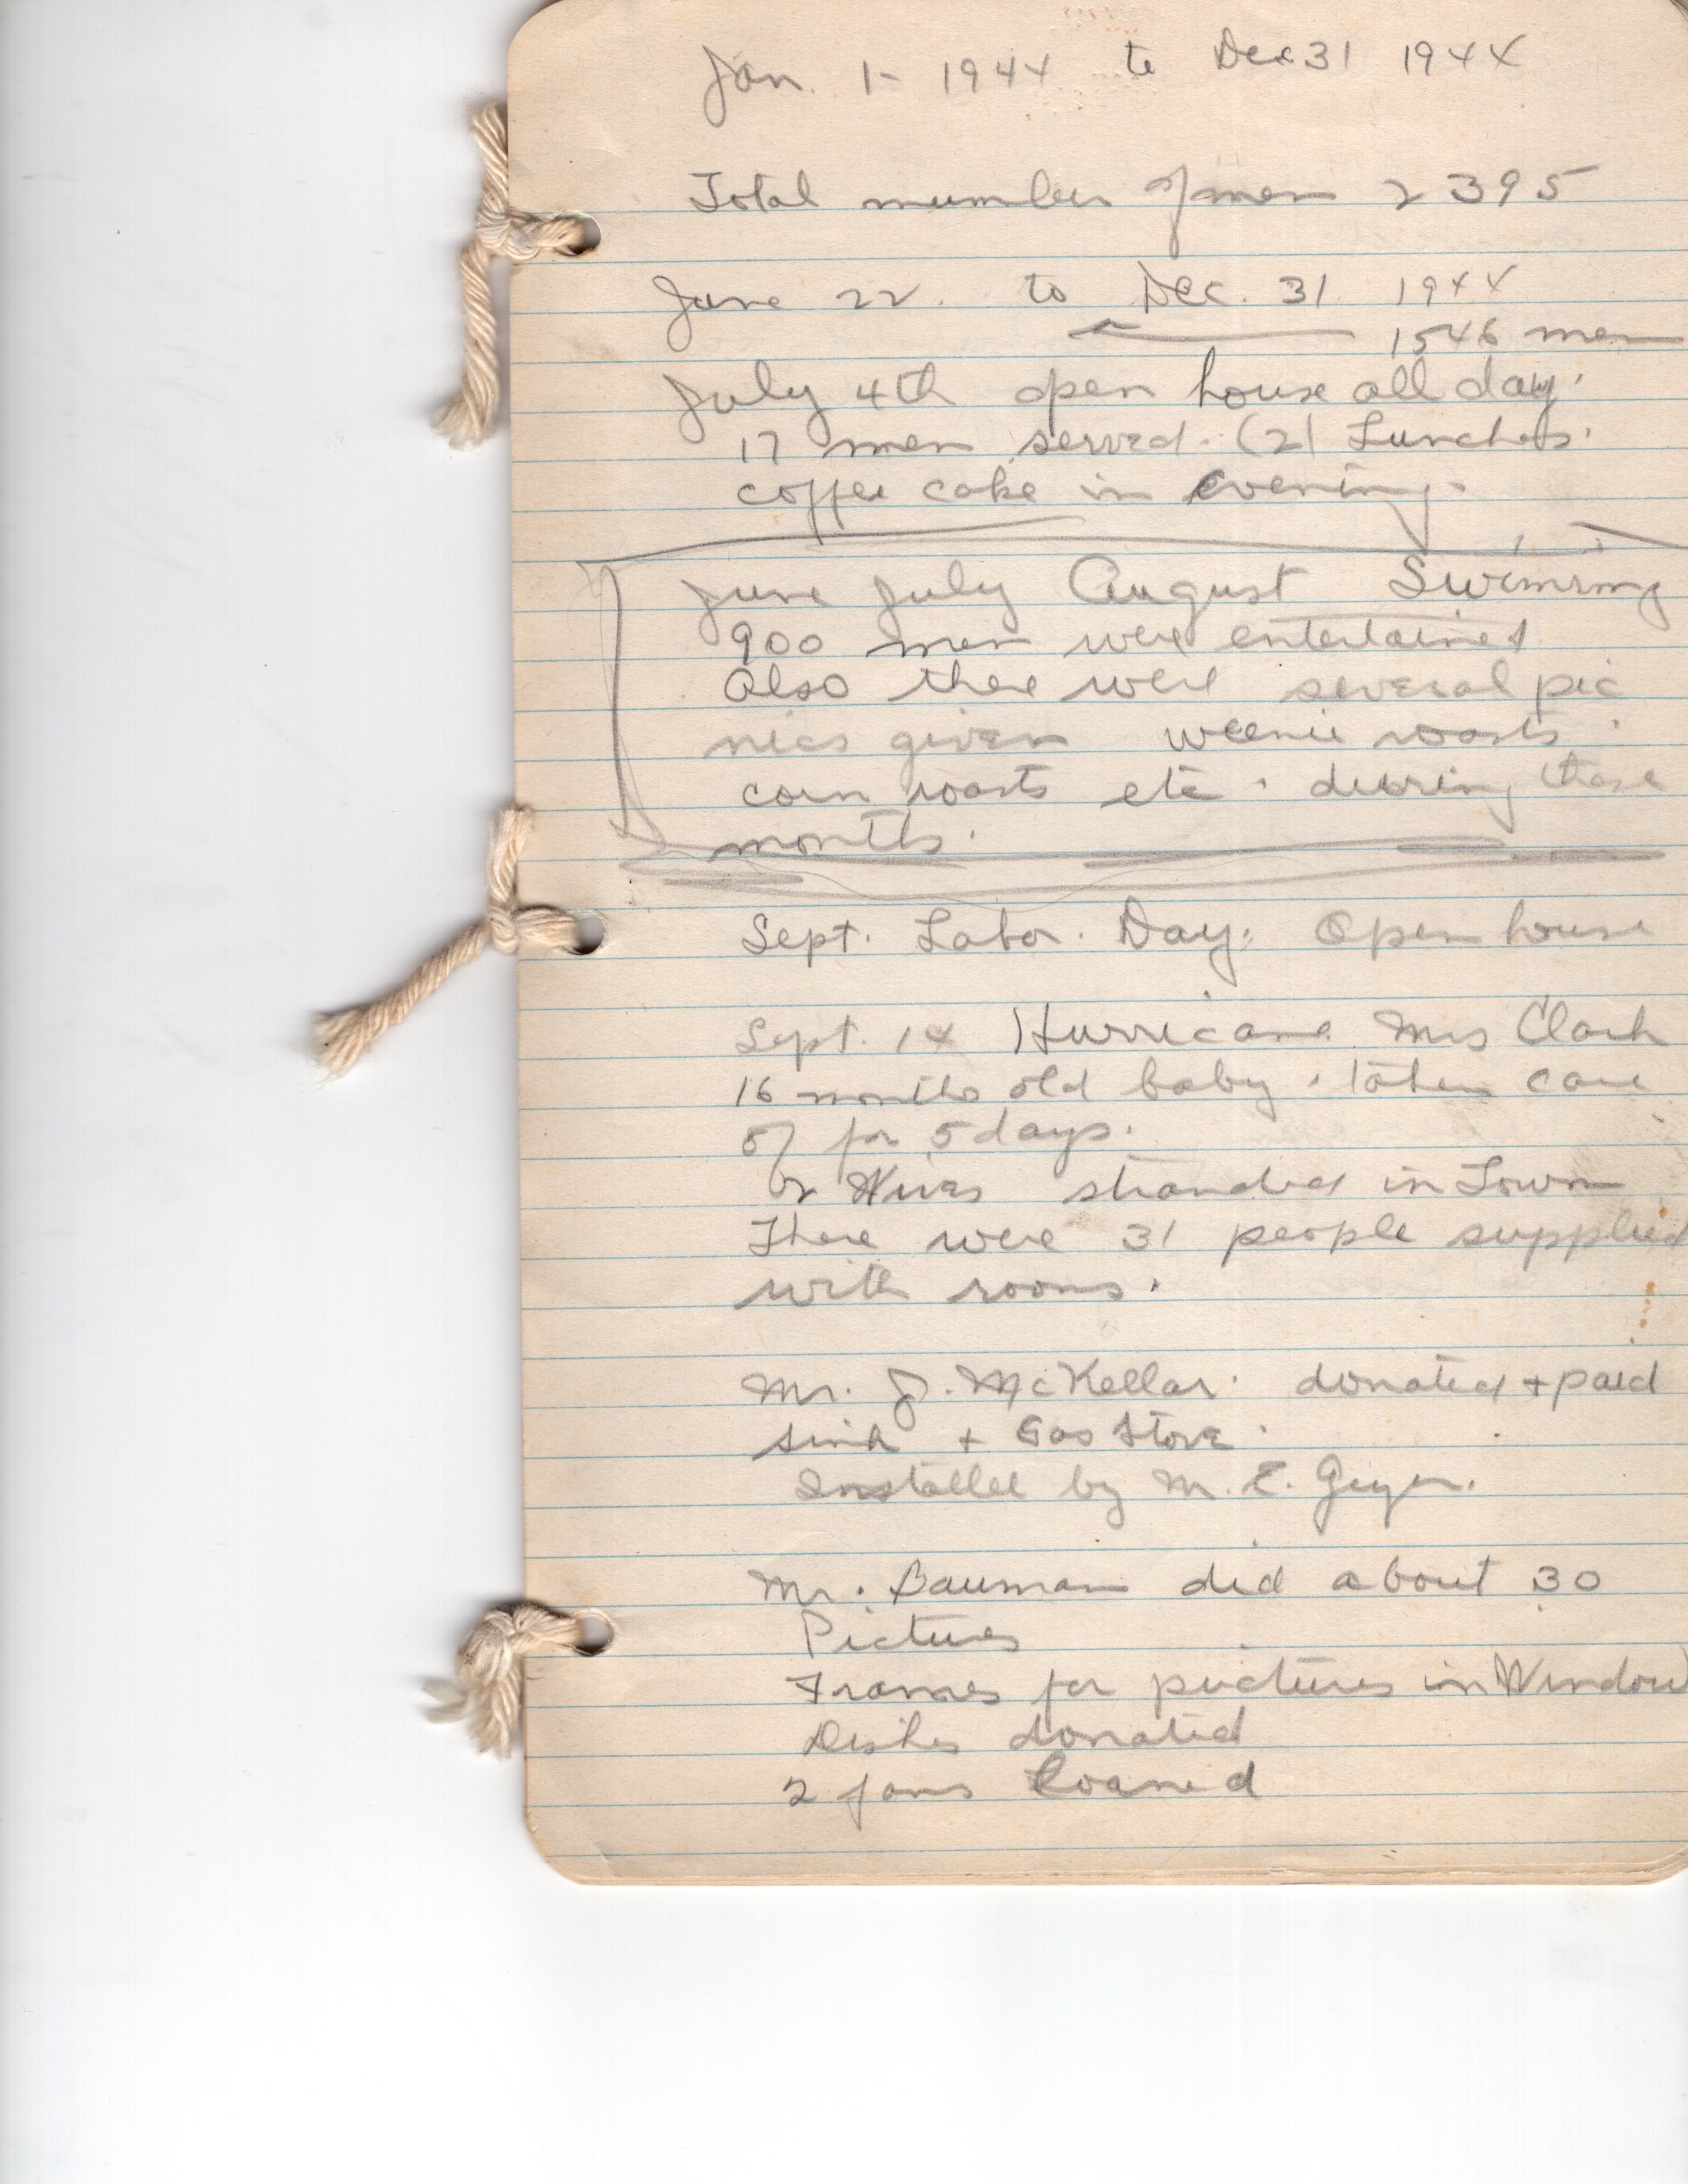 Jan. 1- 1944 to Dec 31 1944
Total number of men 2395
June 22. to Dec. 31 1944
1546 men
July 4th open house all day.
17 men served. (2) Lunches.
coffee cake in evening.
June July August Swimming
900 men were entertained
Also there were several pic
nics given weenie roasts.
corn roasts etc. during these
months.
Sept. Labor. Day. Open house
Sept. 14 Hurricane Mrs Clark
16 months old baby. taken care
of for 5 days.
Wives stranded in Town
There were 31 people supplied
with rooms.
Mr. J. McKellar. donated + paid
sink + Gas Stove.
Installed by M. E. Geyer.
Mr. Bauman did about 30
Pictures
Frames for pictures in Window
Dishes donated
2 fans loaned